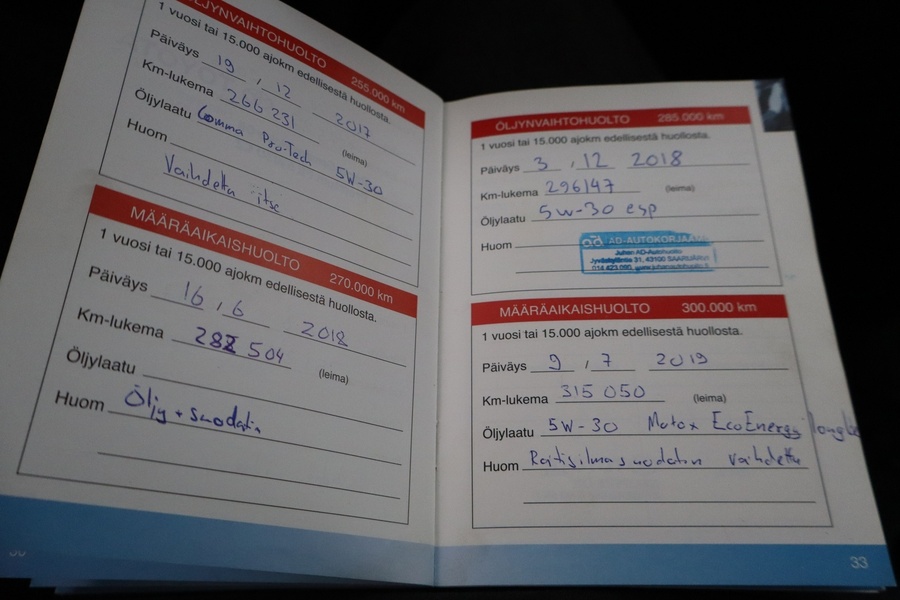 ÖLJYNVAIHTOHUOLTO 255.000 km
1 vuosi tai 15.000 ajokm edellisestä huollosta.
Päiväys 19 , 12 2017
Km-lukema 266 231
(leima)
Öljylaatu Comma Pro-Tech 5W-30
Huom
Vaihdettu itse
MÄÄRÄAIKAISHUOLTO 270.000 km
1 vuosi tai 15.000 ajokm edellisestä huollosta.
Päiväys 16 , 6 2018
Km-lukema 282 504
(leima)
Öljylaatu
Huom Öljy + suodatin
ÖLJYNVAIHTOHUOLTO 285.000 km
1 vuosi tai 15.000 ajokm edellisestä huollosta.
Päiväys 3 , 12 2018
Km-lukema 296147 (leima)
Öljylaatu 5w-30 esp
Huom
ad AD-AUTOKORJAAMO
Juhan AD-Autohuolto
Jyväskyläntie 31, 43100 SAARIJÄRVI
014 423 090,
MÄÄRÄAIKAISHUOLTO 300.000 km
1 vuosi tai 15.000 ajokm edellisestä huollosta.
Päiväys 9 , 7 2019
Km-lukema 315 050 (leima)
Öljylaatu 5W-30 Motox EcoEnergy
Huom Raitisilmasuodatin vaihdettu
33